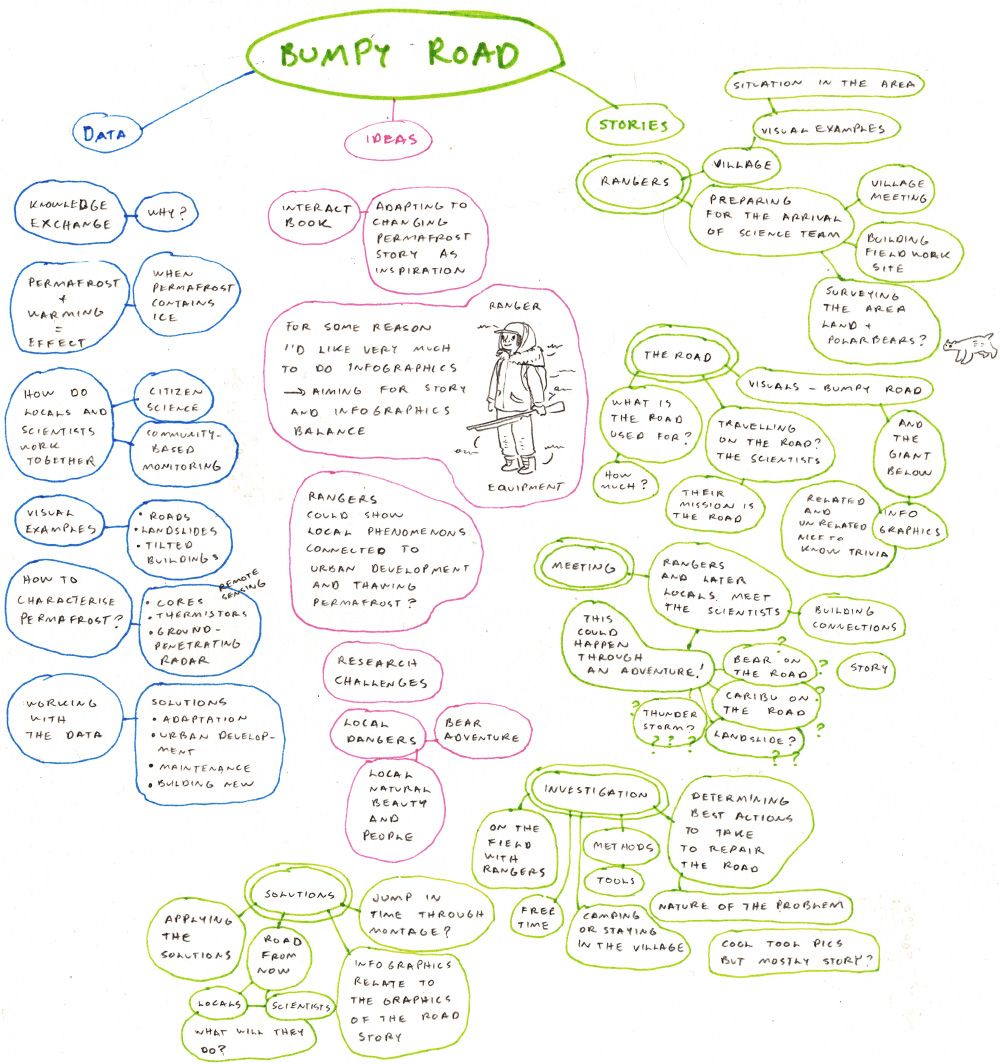 BUMPY ROAD
DATA
KNOWLEDGE
EXCHANGE
WHY?
PERMAFROST
+
WARMING
=
EFFECT
WHEN
PERMAFROST
CONTAINS
ICE
HOW DO
LOCALS AND
SCIENTISTS
WORK
TOGETHER
CITIZEN
SCIENCE
COMMUNITY-
BASED
MONITORING
VISUAL
EXAMPLES
• ROADS
• LANDSLIDES
• TILTED
BUILDINGS
HOW TO
CHARACTERISE
PERMAFROST?
REMOTE
SENCING
• CORES
• THERMISTORS
• GROUND-
PENETRATING
RADAR
WORKING
WITH
THE DATA
SOLUTIONS
• ADAPTATION
• URBAN DEVELOP-
MENT
• MAINTENANCE
• BULDING NEW
IDEAS
INTERACT
BOOK
ADAPTING TO
CHANGING
PERMAFROST
STORY AS
INSPIRATION
FOR SOME REASON
I'D LIKE VERY MUCH
TO DO INFOGRAPHICS
→ AIMING FOR STORY
AND INFOGRAPHICS
BALANCE
RANGER
EQUIPMENT
RANGERS
COULD SHOW
LOCAL PHENOMENONS
CONNECTED TO
URBAN DEVELOPMENT
AND THAWING
PERMAFROST?
RESEARCH
CHALLENGES
LOCAL
DANGERS
BEAR
ADVENTURE
LOCAL
NATURAL
BEAUTY
AND
PEOPLE
STORIES
RANGERS
VILLAGE
VISUAL EXAMPLES
SITUATION IN THE AREA
PREPARING
FOR THE ARRIVAL
OF SCIENCE TEAM
VILLAGE
MEETING
BUILDING
FIELDWORK
SITE
SURVEYING
THE AREA
LAND +
POLARBEARS?
THE ROAD
VISUALS - BUMPY ROAD
AND
THE
GIANT
BELOW
INFO
GRAPHICS
RELATED
AND
UNRELATED
NICE TO
KNOW TRIVIA
WHAT IS
THE ROAD
USED FOR?
HOW
MUCH?
TRAVELLING
ON THE ROAD?
THE SCIENTISTS
THEIR
MISSION IS
THE ROAD
MEETING
RANGERS
AND LATER
LOCALS, MEET
THE SCIENTISTS
BUILDING
CONNECTIONS
STORY
THIS
COULD
HAPPEN
THROUGH
AN ADVENTURE!
?
BEAR ON
THE ROAD
?
?
CARIBU ON
THE ROAD
?
?
LANDSLIDE?
? ?
?
THUNDER
STORM?
? ? ?
INVESTIGATION
ON THE
FIELD
WITH
RANGERS
FREE
TIME
METHODS
TOOLS
CAMPING
OR STAYING
IN THE VILLAGE
DETERMINING
BEST ACTIONS
TO TAKE
TO REPAIR
THE ROAD
NATURE OF THE PROBLEM
COOL TOOL PICS
BUT MOSTLY STORY?
SOLUTIONS
APPLYING
THE
SOLUTIONS
ROAD
FROM
NOW
LOCALS
SCIENTISTS
WHAT WILL THEY
DO?
JUMP IN
TIME THROUGH
MONTAGE?
INFOGRAPHICS
RELATE TO
THE GRAPHICS
OF THE ROAD
STORY